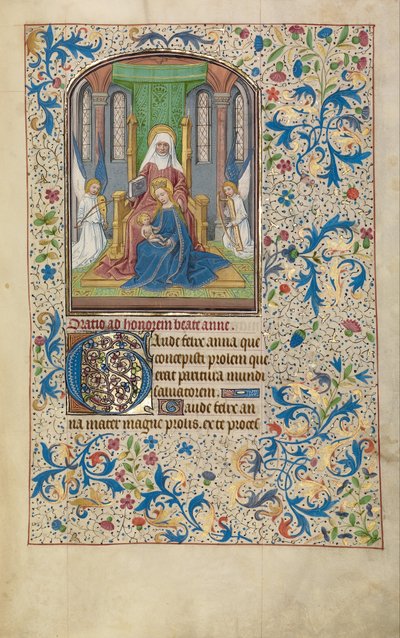 Oratio ad honorem beate anne.
Gaude felix anna que
concepisti prolem que
erat paritura mundi
salvatorem.
Gaude felix an
na mater magne prolis. ex te proces